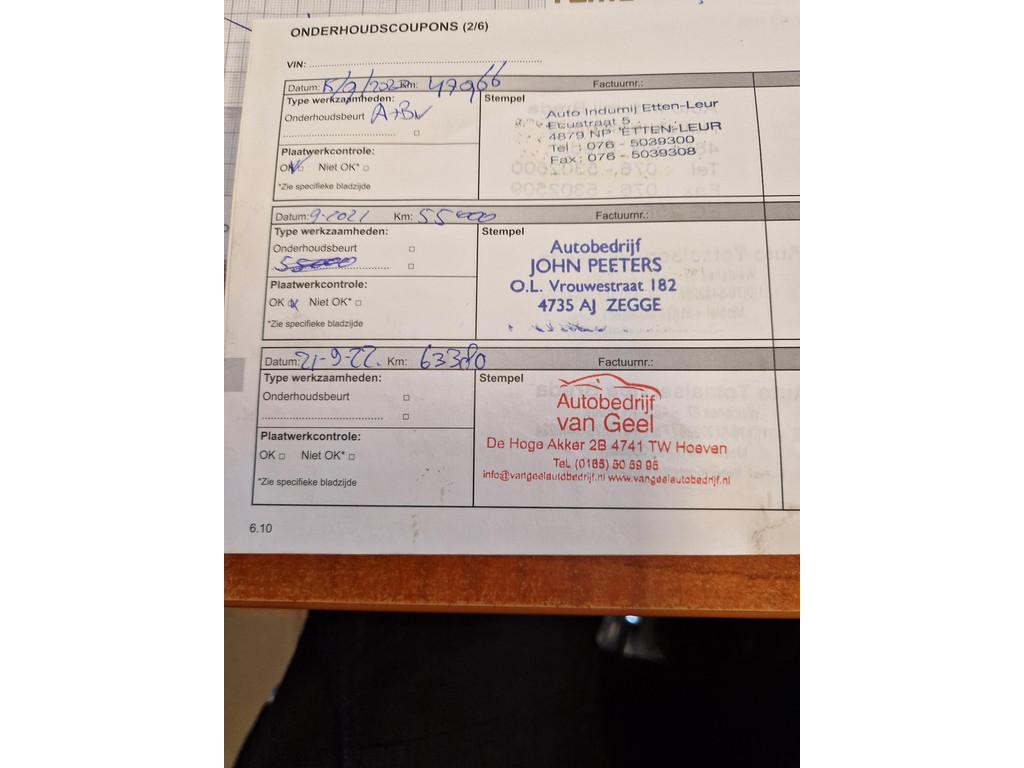 ONDERHOUDSCOUPONS (2/6)
VIN:
Datum: Km: 47966 Factuurnr.:
Type werkzaamheden:
Onderhoudsbeurt A+B
Plaatwerkcontrole:
OK Niet OK*
*Zie specifieke bladzijde
Stempel
Auto Indumij Etten-Leur
Ecustraat 5
4879 NP ETTEN-LEUR
Tel : 076 - 5039300
Fax : 076 - 5039308
Datum: 9-2021 Km: 55000 Factuurnr.:
Type werkzaamheden:
Onderhoudsbeurt
55000
Plaatwerkcontrole:
OK Niet OK*
*Zie specifieke bladzijde
Stempel
Autobedrijf
JOHN PEETERS
O.L. Vrouwestraat 182
4735 AJ ZEGGE
Datum: 21-9-22. Km: 63380 Factuurnr.:
Type werkzaamheden:
Onderhoudsbeurt
Plaatwerkcontrole:
OK Niet OK*
*Zie specifieke bladzijde
Stempel
Autobedrijf
van Geel
De Hoge Akker 2B 4741 TW Hoeven
Tel. (0165) 50 59 95
info@vangeelautobedrijf.nl www.vangeelautobedrijf.nl
6.10